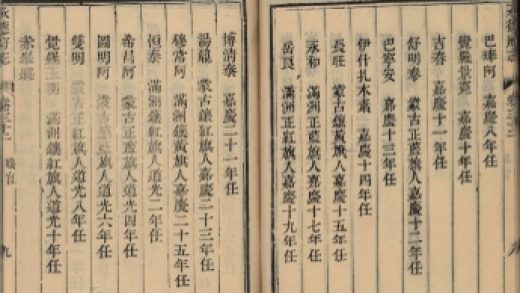 承德府志
巴琫阿 嘉慶八年任
覺羅景
嘉慶十年任
吉春 嘉慶十一年任
舒明泰 蒙古正黃旗人嘉慶十二年任
巴寧安 嘉慶十三年任
伊什扎木素 嘉慶十四年任
長旺 蒙古鑲黃旗人嘉慶十五年任
永和 滿洲正藍旗人嘉慶十七年任
岳良 滿洲正紅旗人嘉慶十九年任
博清泰 嘉慶二十一年任
湯龍 蒙古鑲紅旗人嘉慶二十三年任
穆當阿 滿洲鑲黃旗人嘉慶二十五年任
恒泰 滿洲鑲紅旗人道光二年任
希昌阿 蒙古正藍旗人道光四年任
圖明阿 蒙古正紅旗人道光六年任
雙明 蒙古正黃旗人道光八年任
覺羅 滿洲鑲紅旗人道光十年任
赤峯縣
承德府志 卷三十二 職官 九